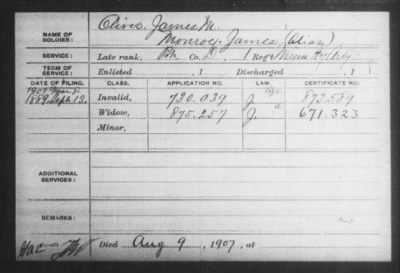 NAME OF SOLDIER: Oliver, James M.
Monroe, James (Alias)
SERVICE: Late rank, Co. 1 Reg't
TERM OF SERVICE: Enlisted , 1 Discharged , 1
DATE OF FILING. CLASS. APPLICATION NO. LAW. CERTIFICATE NO.
1907
1889 Sept. 13. Invalid, 730.039 J 873.589
Widow, 875.257 J 671.323
Minor,
ADDITIONAL SERVICES:
REMARKS:
Died Aug 9, 1907, at